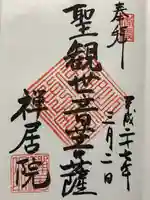 奉拝
聖観世音菩薩
平成二十七年
三月二日
禅居院